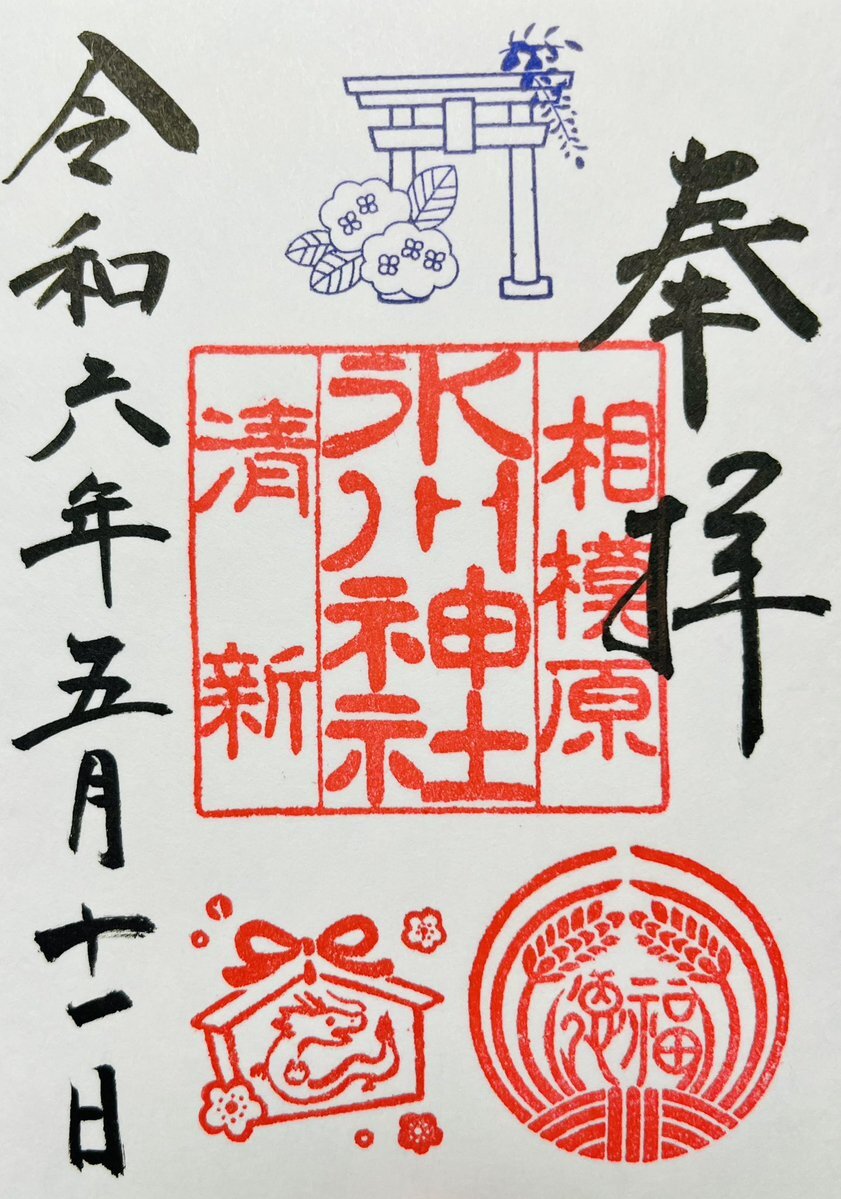 奉拝
相模原
氷川神社
清新
福徳
令和六年五月十一日